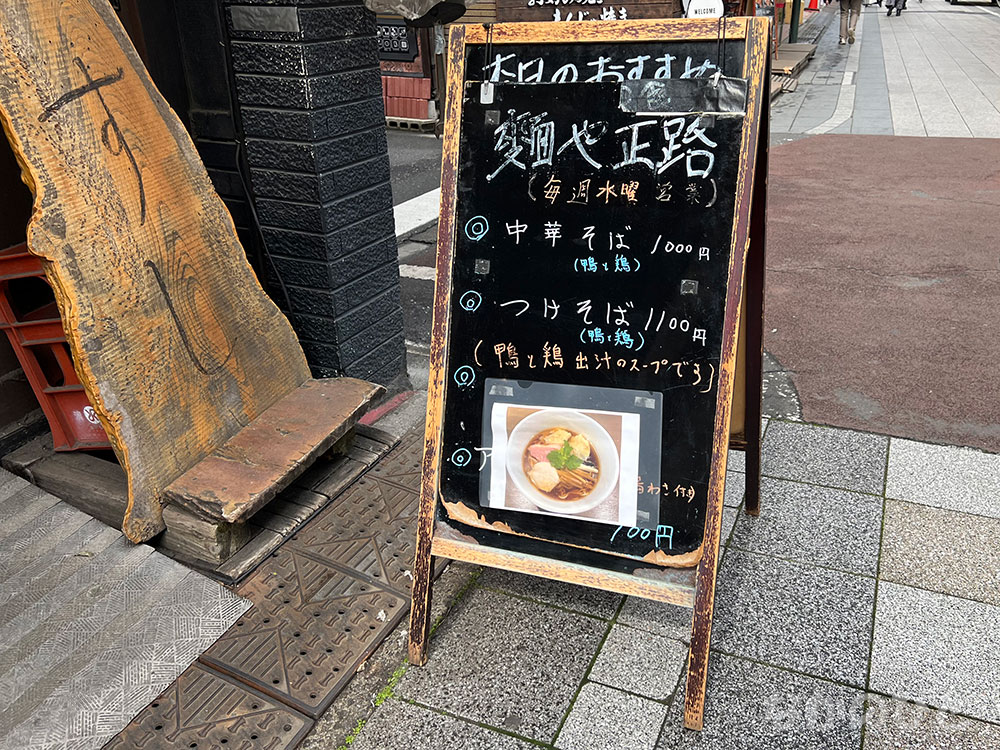 本日のおすすめ
麺や正路
(毎週水曜営業)
◎ 中華そば 1000円
(鴨と鶏)
◎ つけそば 1100円
(鴨と鶏)
(鴨と鶏出汁のスープです)
◎
◎ ア
わさ付
700円
WELCOME